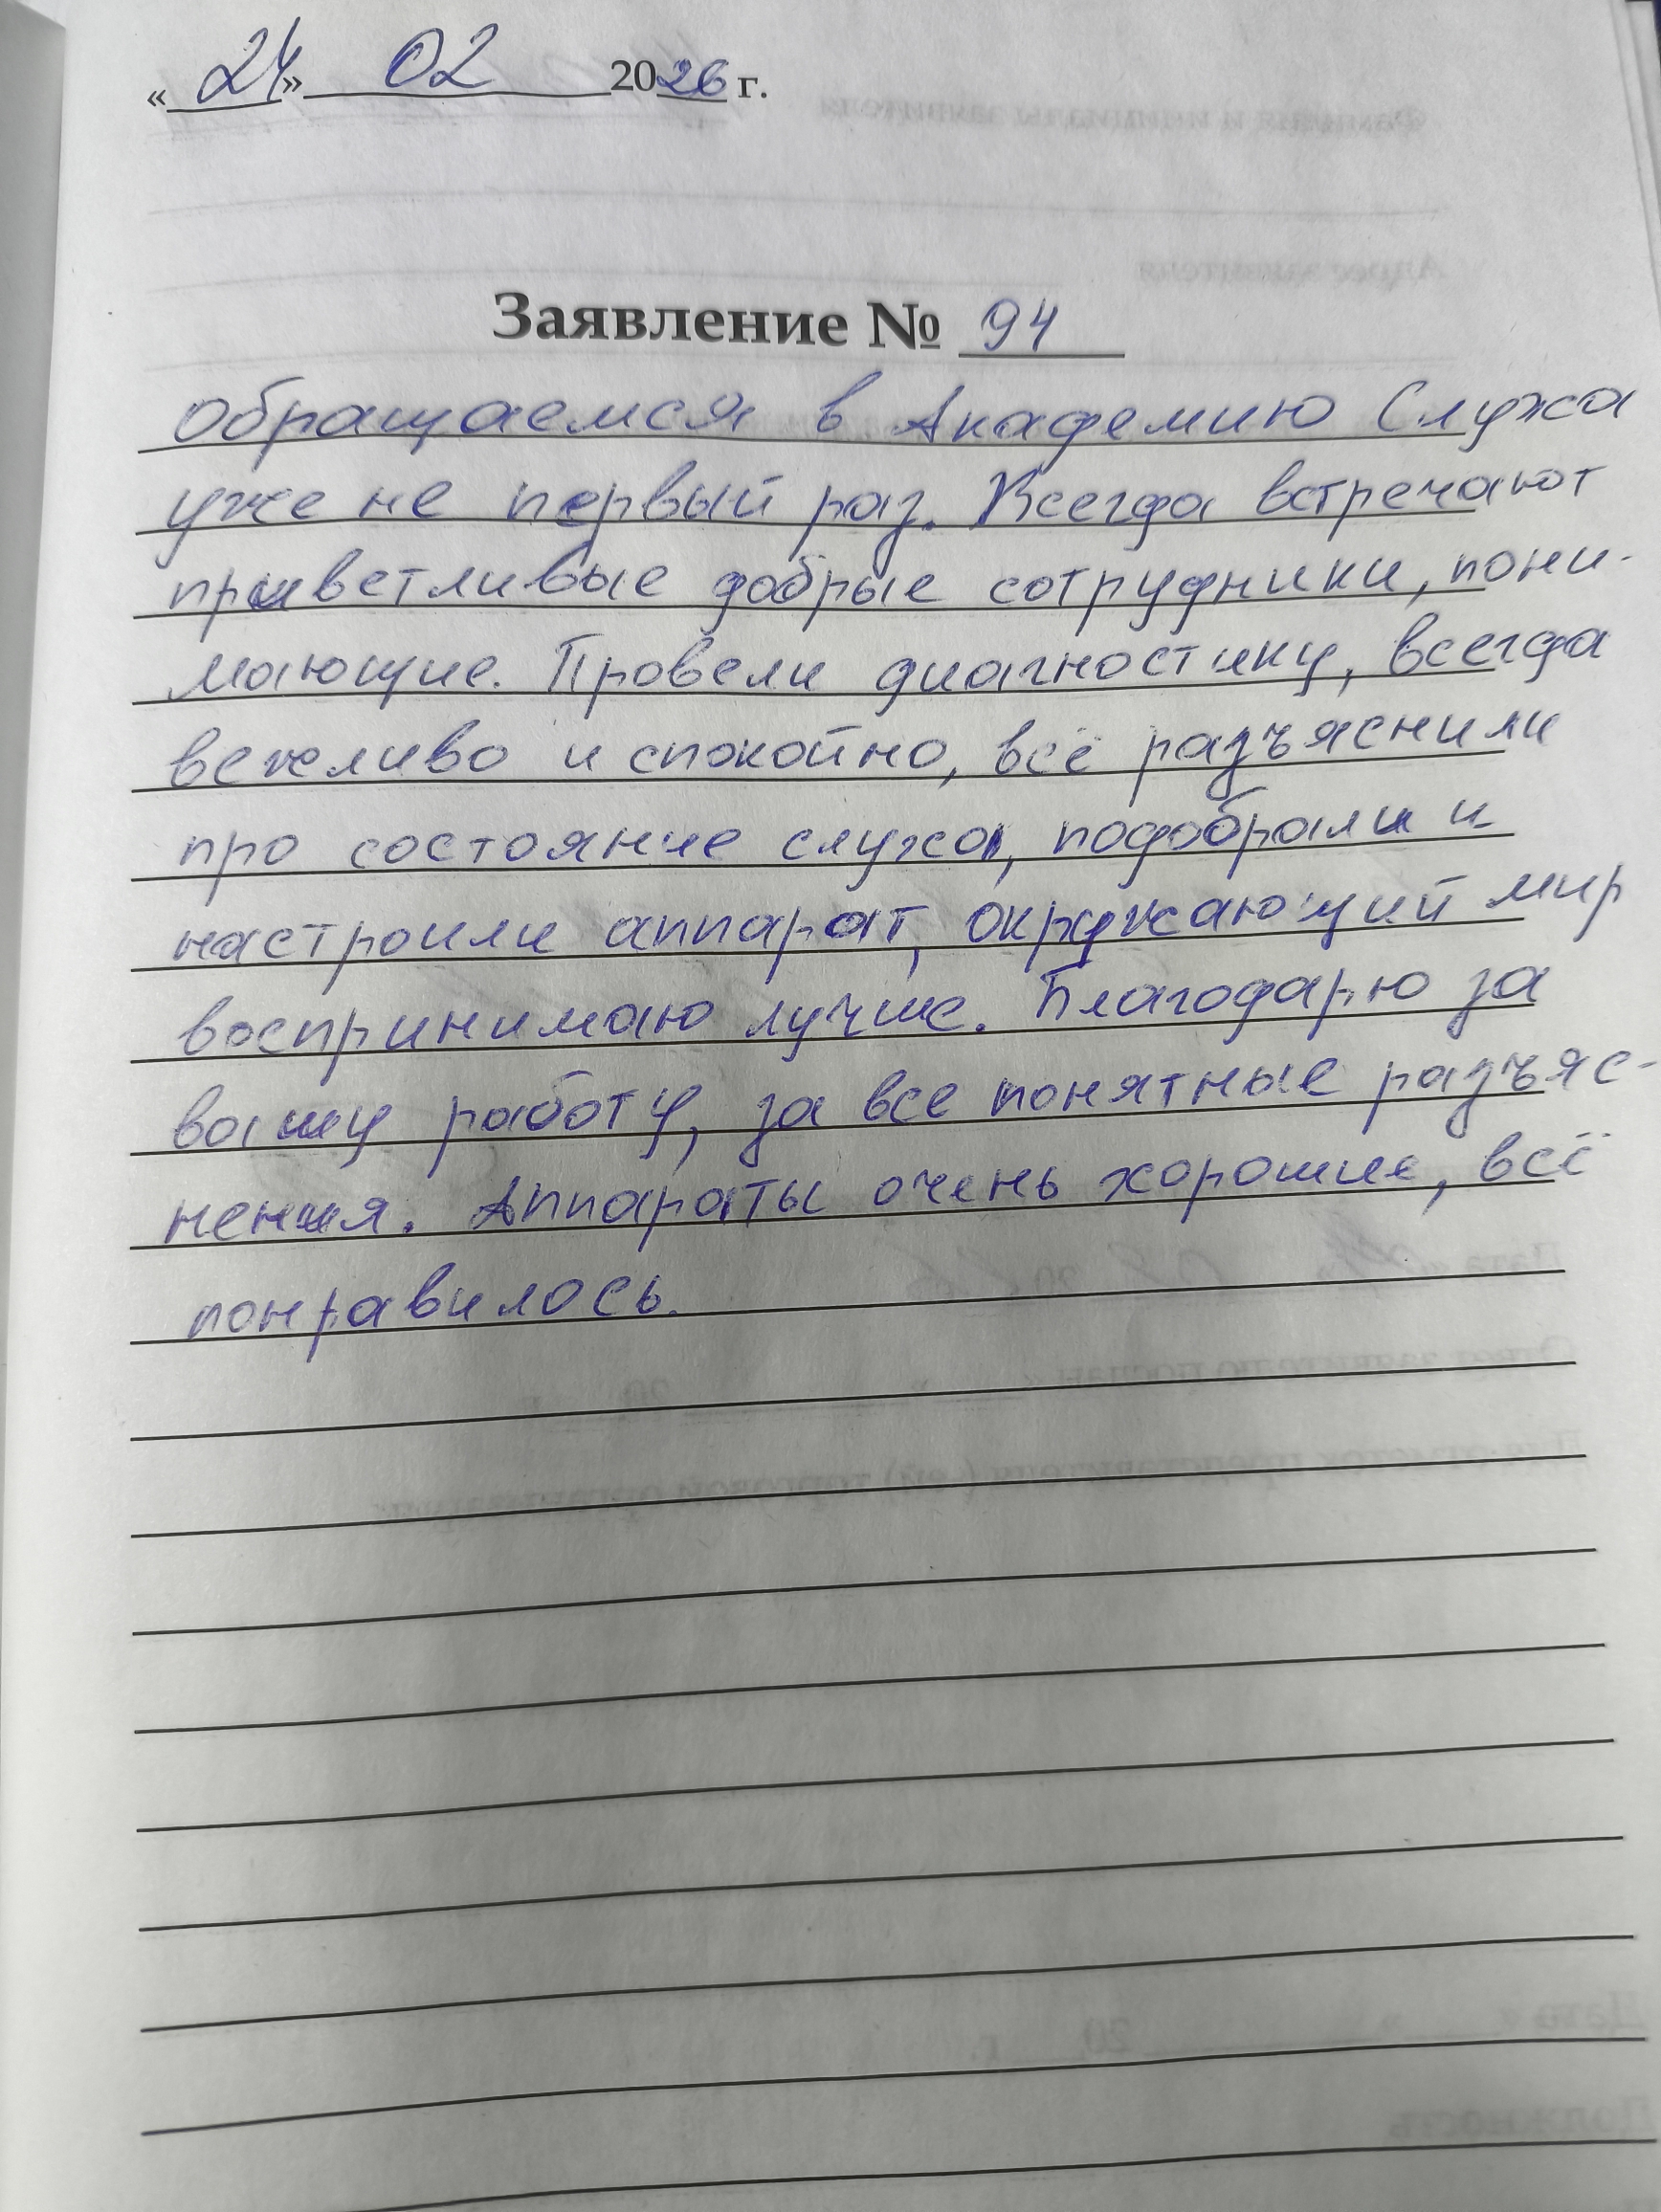 «24» 02 2026 г.
Заявление № 94
Обращаемся в Академию Слуха
уже не первый раз. Всегда встречают
приветливые добрые сотрудники, пони-
мающие. Провели диагностику, всегда
вежливо и спокойно, всё разъяснили
про состояние слуха, подобрали и
настроили аппарат, окружающий мир
воспринимаю лучше. Благодарю за
вашу работу, за все понятные разъяс-
нения. Аппараты очень хорошие, всё
понравилось.